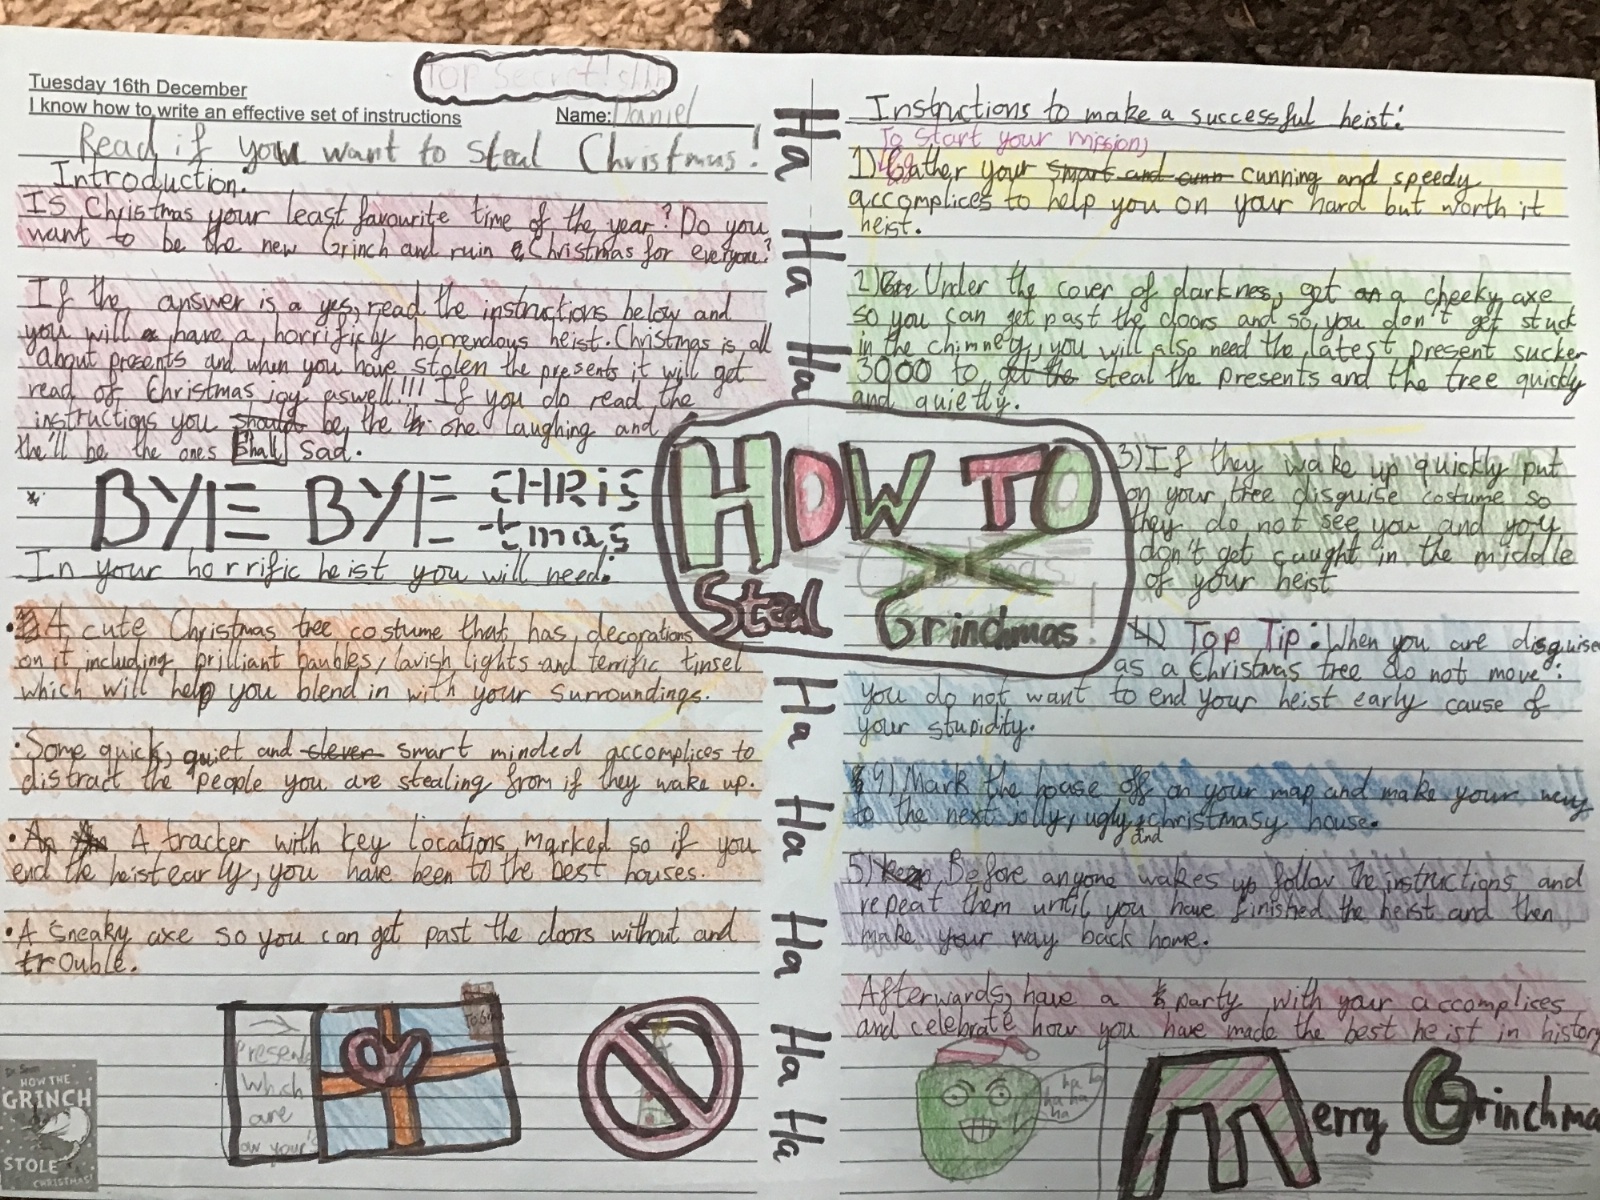 Top Secret!
Tuesday 16th December
I know how to write an effective set of instructions
Name: Daniel
Read if you want to steal Christmas!
Introduction:
Is Christmas your least favourite time of the year? Do you
want to be the new Grinch and ruin Christmas for everyone?
If the answer is a yes, read the instructions below and
you will have a horrificly horrendous heist. Christmas is all
about presents and when you have stolen the presents it will get
read of Christmas joy aswell!!! If you do read the
instructions you should be the one laughing and
the'll be the ones shall sad.
BYE BYE CHRiS
tmas
In your horrific heist you will need:
• A cute Christmas tree costume that has decorations
on it including brilliant baubles, lavish lights and terrific tinsel
which will help you blend in with your surroundings.
• Some quick, quiet and clever smart minded accomplices to
distract the people you are stealing from if they wake up.
• An A tracker with key locations marked so if you
end the heist early, you have been to the best houses.
• A sneaky axe so you can get past the doors without and
trouble.
Presents
Which
are
now your's
Dr. Seuss
HOW THE
GRINCH
STOLE
CHRISTMAS!
Ha
Ha
Ha
HOW TO
Steal
Christmas
Grinchmas!
Ha
Ha
Ha
Ha
Ha
Instructions to make a successful heist:
To start your mission,
1) Gather your smart and cunn cunning and speedy
accomplices to help you on your hard but worth it
heist.
2) Under the cover of darkness, get an a cheeky axe
so you can get past the doors and so you don't get stuck
in the chimney, you will also need the latest present sucker
3000 to get the steal the presents and the tree quickly
and quietly.
3) If they wake up quickly put
on your tree disguise costume so
they do not see you and you
don't get caught in the middle
of your heist
4) Top Tip: When you are disguise
as a Christmas tree do not move:
you do not want to end your heist early cause of
your stupidity.
4) Mark the house off on your map and make your way
to the next jolly, ugly and christmasy house.
5) Before anyone wakes up follow the instructions and
repeat them until you have finished the heist and then
make your way back home.
Afterwards, have a party with your accomplices
and celebrate how you have made the best heist in history
ha ha
ha ha
ha
Merry Grinchma